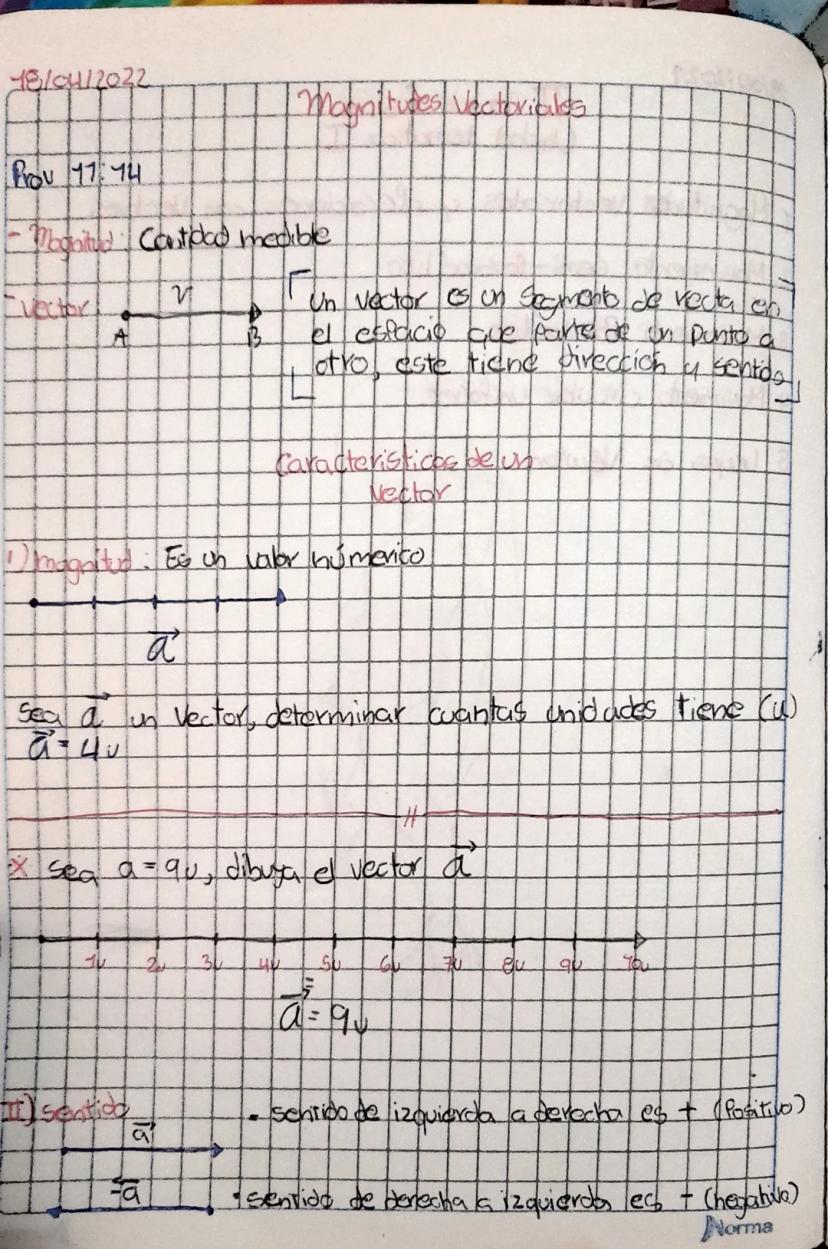 18/04/2022
Magnitudes Vectoriales
Prov 17:14
- Magnitud: Cantidad medible
- vector: V
A B
Un vector es un segmento de recta en
el espacio que parte de un punto a
otro, este tiene dirección y sentido
Caracteristicas de un
vector
I) magnitud: Es un valor númerico
a
Sea a un vector, determinar cuantas unidades tiene (u)
a = 4u
X sea a = 9u, dibuja el vector a
1u 2u 3u 4u 5u 6u 7u 8u 9u 10u
a = 9u
II) sentido
• sentido de izquierda a derecha es + (Positivo)
a
-a
• sentido de derecha a izquierda es - (negativo)
Norma